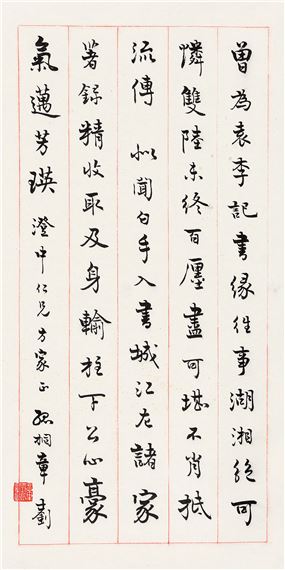 曾為袁季記書緣往事湖湘絕可
憐雙陸未終百廛盡可堪不肖抵
流傳 似聞白手入書城江左諸家
著錄精收取及身輸柱下公心豪
氣邁芳瑛 澄中仁兄方家正 孤桐章釗